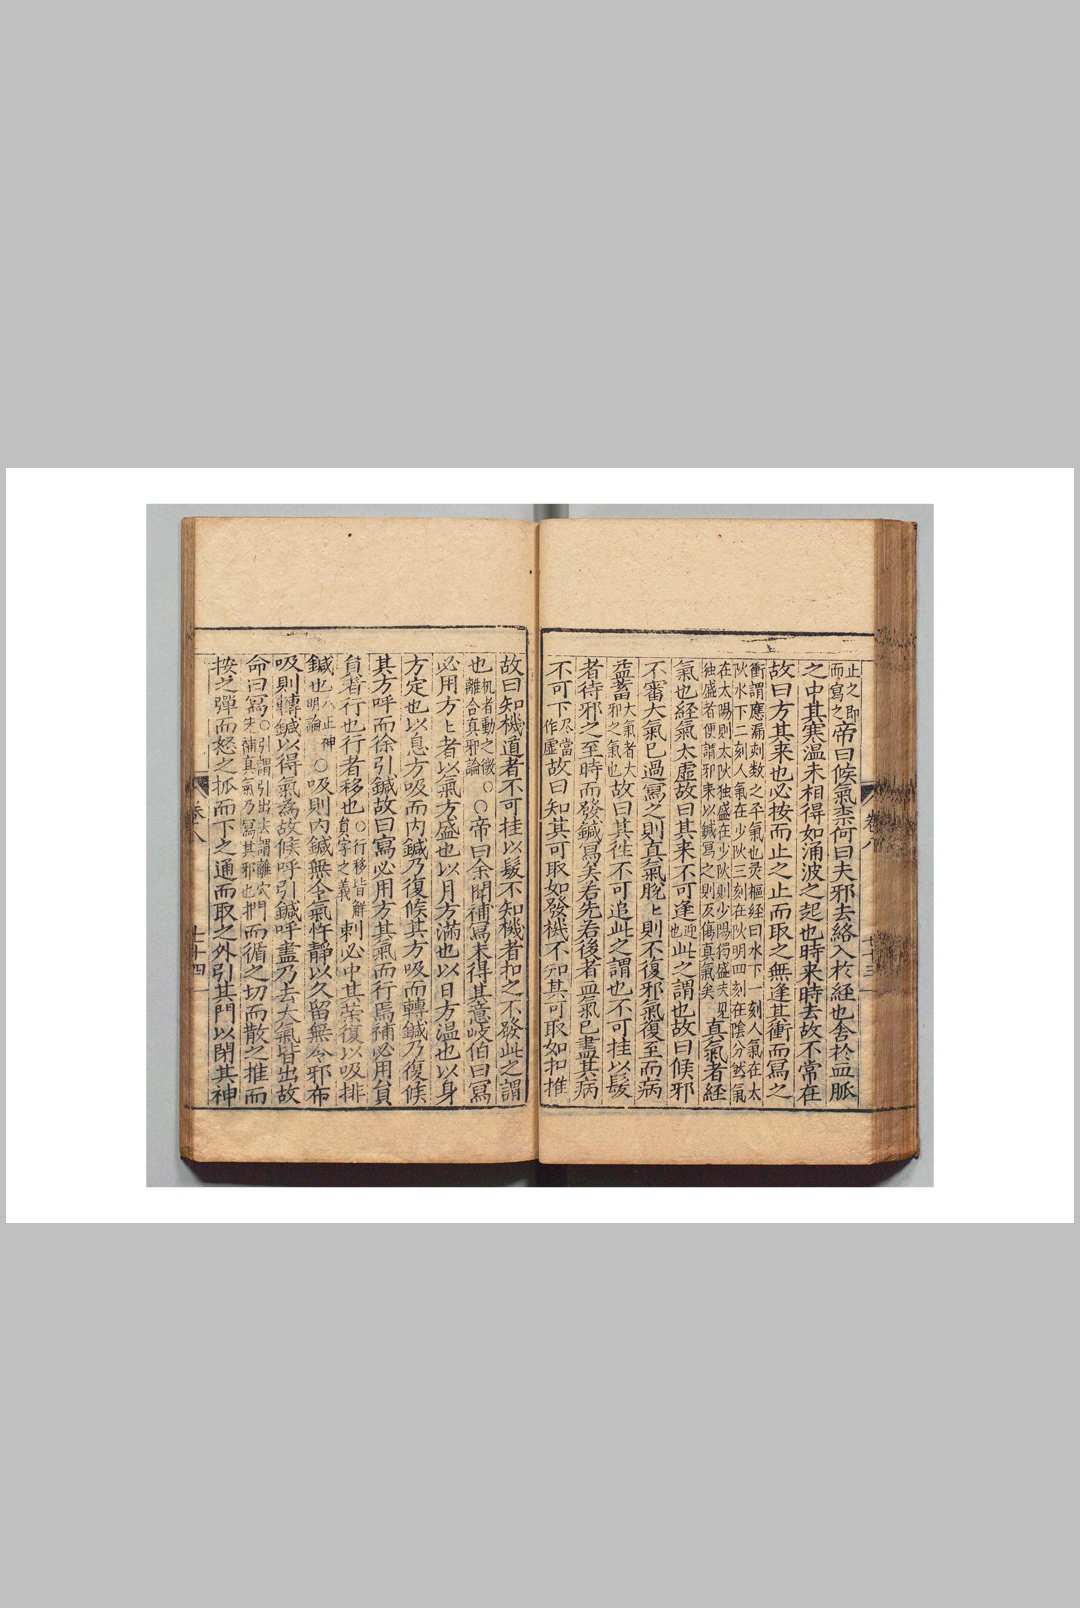 止之即而寫之帝曰候氣柰何曰夫邪去絡入於経也舍於血脈
之中其寒温未相得如涌波之起也時来時去故不常在
故曰方其来也必按而止之止而取之無逢其衝而寫之
衝謂應漏刻数之平氣也霊樞経曰水下一刻人氣在太
阦水下二刻人氣在少阦三刻在阦明四刻在陰分然氣
在太陽則太阦独盛在少阦則少陽獨盛夫見
独盛者便謂邪来以鍼寫之則反傷真氣矣真氣者経
氣也経氣太虛故曰其来不可逢此之謂也故曰候邪
不審大氣已過寫之則真氣脫〻則不復邪氣復至而病
益蓄大氣者大邪之氣也故曰其往不可追此之謂也不可挂以髮
者待邪之至時而發鍼寫矣若先若後者血氣已盡其病
不可下尽當作虚故曰知其可取如發機不知其可取如扣椎
卷八
七十三
故曰知機道者不可挂以髮不知機者扣之不發此之謂
也机者動之微〇離合真邪論〇帝曰余聞補寫未得其意岐伯曰寫
必用方〻者以氣方盛也以月方滿也以日方温也以身
方定也以息方吸而内鍼乃復候其方吸而轉鍼乃復候
其方呼而徐引鍼故曰寫必用方其氣而行焉補必用員
員者行也行者移也〇行移皆解員字之義刺必中其荣復以吸排
鍼也八正神明論〇吸則内鍼無令氣忤靜以久留無令邪布
吸則轉鍼以得氣為故候呼引鍼呼盡乃去大氣皆出故
命曰寫〇引謂引出去謂離穴門而循之切而散之推而
按之彈而怒之抓而下之通而取之外引其門以閉其神
卷八
七十四